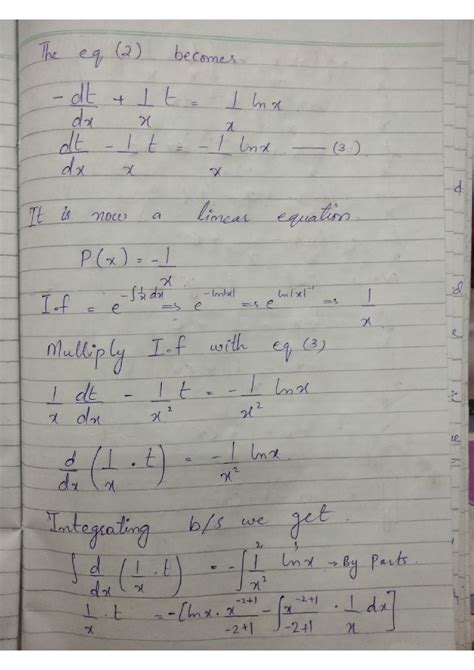 The eq (2) becomes.
-dt/dx + 1/x t = 1/x lnx
dt/dx - 1/x t = -1/x lnx —— (3)
It is now a linear equation.
P(x) = -1/x
I.f = e^{-∫1/x dx} => e^{-ln|x|} => e^{ln|x|^{-1}} => 1/x
Multiply I.f with eq (3)
1/x dt/dx - 1/x² t = -1/x² lnx
d/dx (1/x · t) = -1/x² lnx.
Integrating b/s we get.
∫ d/dx (1/x · t) = -∫ 1/x² lnx → By Parts.
1/x · t = -[lnx · x^{-2+1}/-2+1 - ∫ x^{-2+1}/-2+1 · 1/x dx]